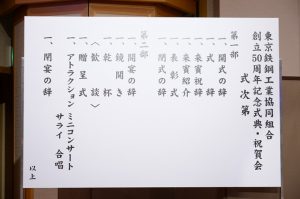 東京鉄鋼工業協同組合
創立50周年記念式典・祝賀会
式次第
第一部
一、開式の辞
一、式辞
一、来賓祝辞
一、来賓紹介
一、表彰式
一、閉式の辞
第二部
一、開宴の辞
一、鏡開き
一、乾杯
〈歓談〉
一、贈呈式
一、アトラクション ミニコンサート
サライ 合唱
一、閉宴の辞
以上